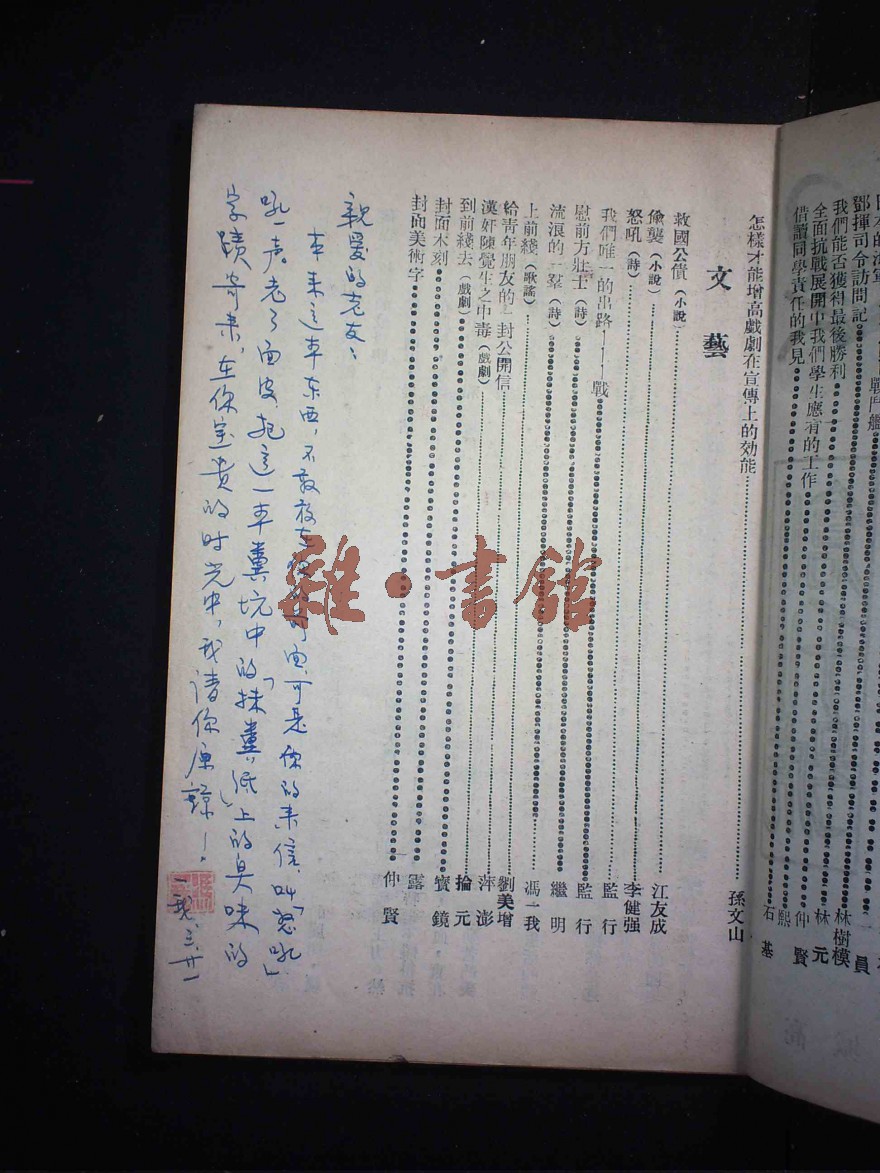 鄧揮司令訪問記
我們能否獲得最後勝利 林樹模
全面抗戰展開中我們學生應有的工作 林元
借讀同學責任的我見 仲賢
石基
怎樣才能增高戲劇在宣傳上的効能 孫文山
文藝
救國公債（小說） 江友成
偷襲（小說） 李健强
怒吼（詩） 監行
我們唯一的出路——戰 監行
慰前方壯士（詩） 繼明
流浪的一羣（詩） 馮一我
上前綫（歌謠） 劉美增
給青年朋友的一封公開信 萍澎
漢奸陳覺生之中毒（戲劇） 掄元
到前綫去（戲劇） 寶鏡
封面木刻 露
封面美術字 仲賢
親爱的老友：
本来这本东西，不敢放在你的前面，可是你的来信，叫「怒吼」
吼一声，老了面皮，把這一本糞坑中的「抹糞」纸上的臭味的
字蹟寄来，在你宝贵的时光中，我请你原諒！
一我，三，廿一
雜·書館